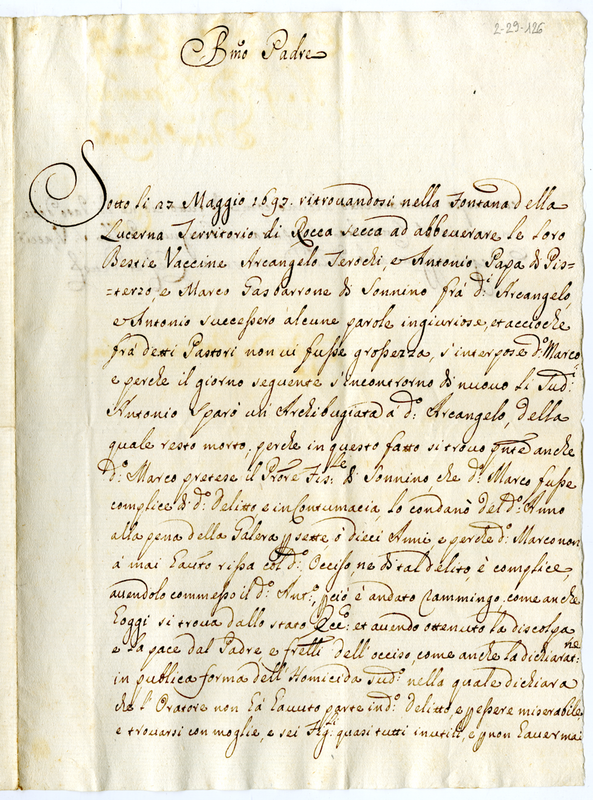 2-29-126
Bmo Padre
Sotto li 27 Maggio 1697. ritrovandosi nella Fontana della
Lucerna Territorio di Rocca secca ad abbeverare le loro
Bestie Vaccine Arcangelo Ierochi, e Antonio Papa di Pis=
=terzo, e Marco Gasbarrone di Sonnino frà d.º Arcangelo,
e Antonio successero alcune parole ingiuriose, et acciochè
frà detti Pastori non vi fusse grossezza, s'interpose d.º Marco,
e perche il giorno seguente s'incontrorno di nuovo li sud.i
Antonio sparò un Archibugiata à d.º Arcangelo, della
quale restò morto, perche in questo fatto si trovò pnte anche
d.º Marco pretese il Prore Fisle di Sonnino che d.º Marco fusse
complice di d.º Delitto e in Contumacia, lo condanò del d.º Anno
alla pena della Galera p sette, ò dieci Anni e perche d.º Marco non
à mai hauto rissa col d.º Occiso, ne di tal delito, è complice,
avendolo commesso il d.º Ant.º, p ciò è andato rammingo, come anche
hoggi si trova dallo stato Ecc.º: et avendo ottenuto la discolpa
e la pace dal Padre e frelli dell'occiso, come anche la dichiaraz.ne
in publica forma dell'Homicida sud.º nella quale dichiara
che l'Oratore non hà havuto parte in d.º Delitto, e p essere miserabile
e trovarsi con moglie, e sei figli quasi tutti inutili, e p non haver mai